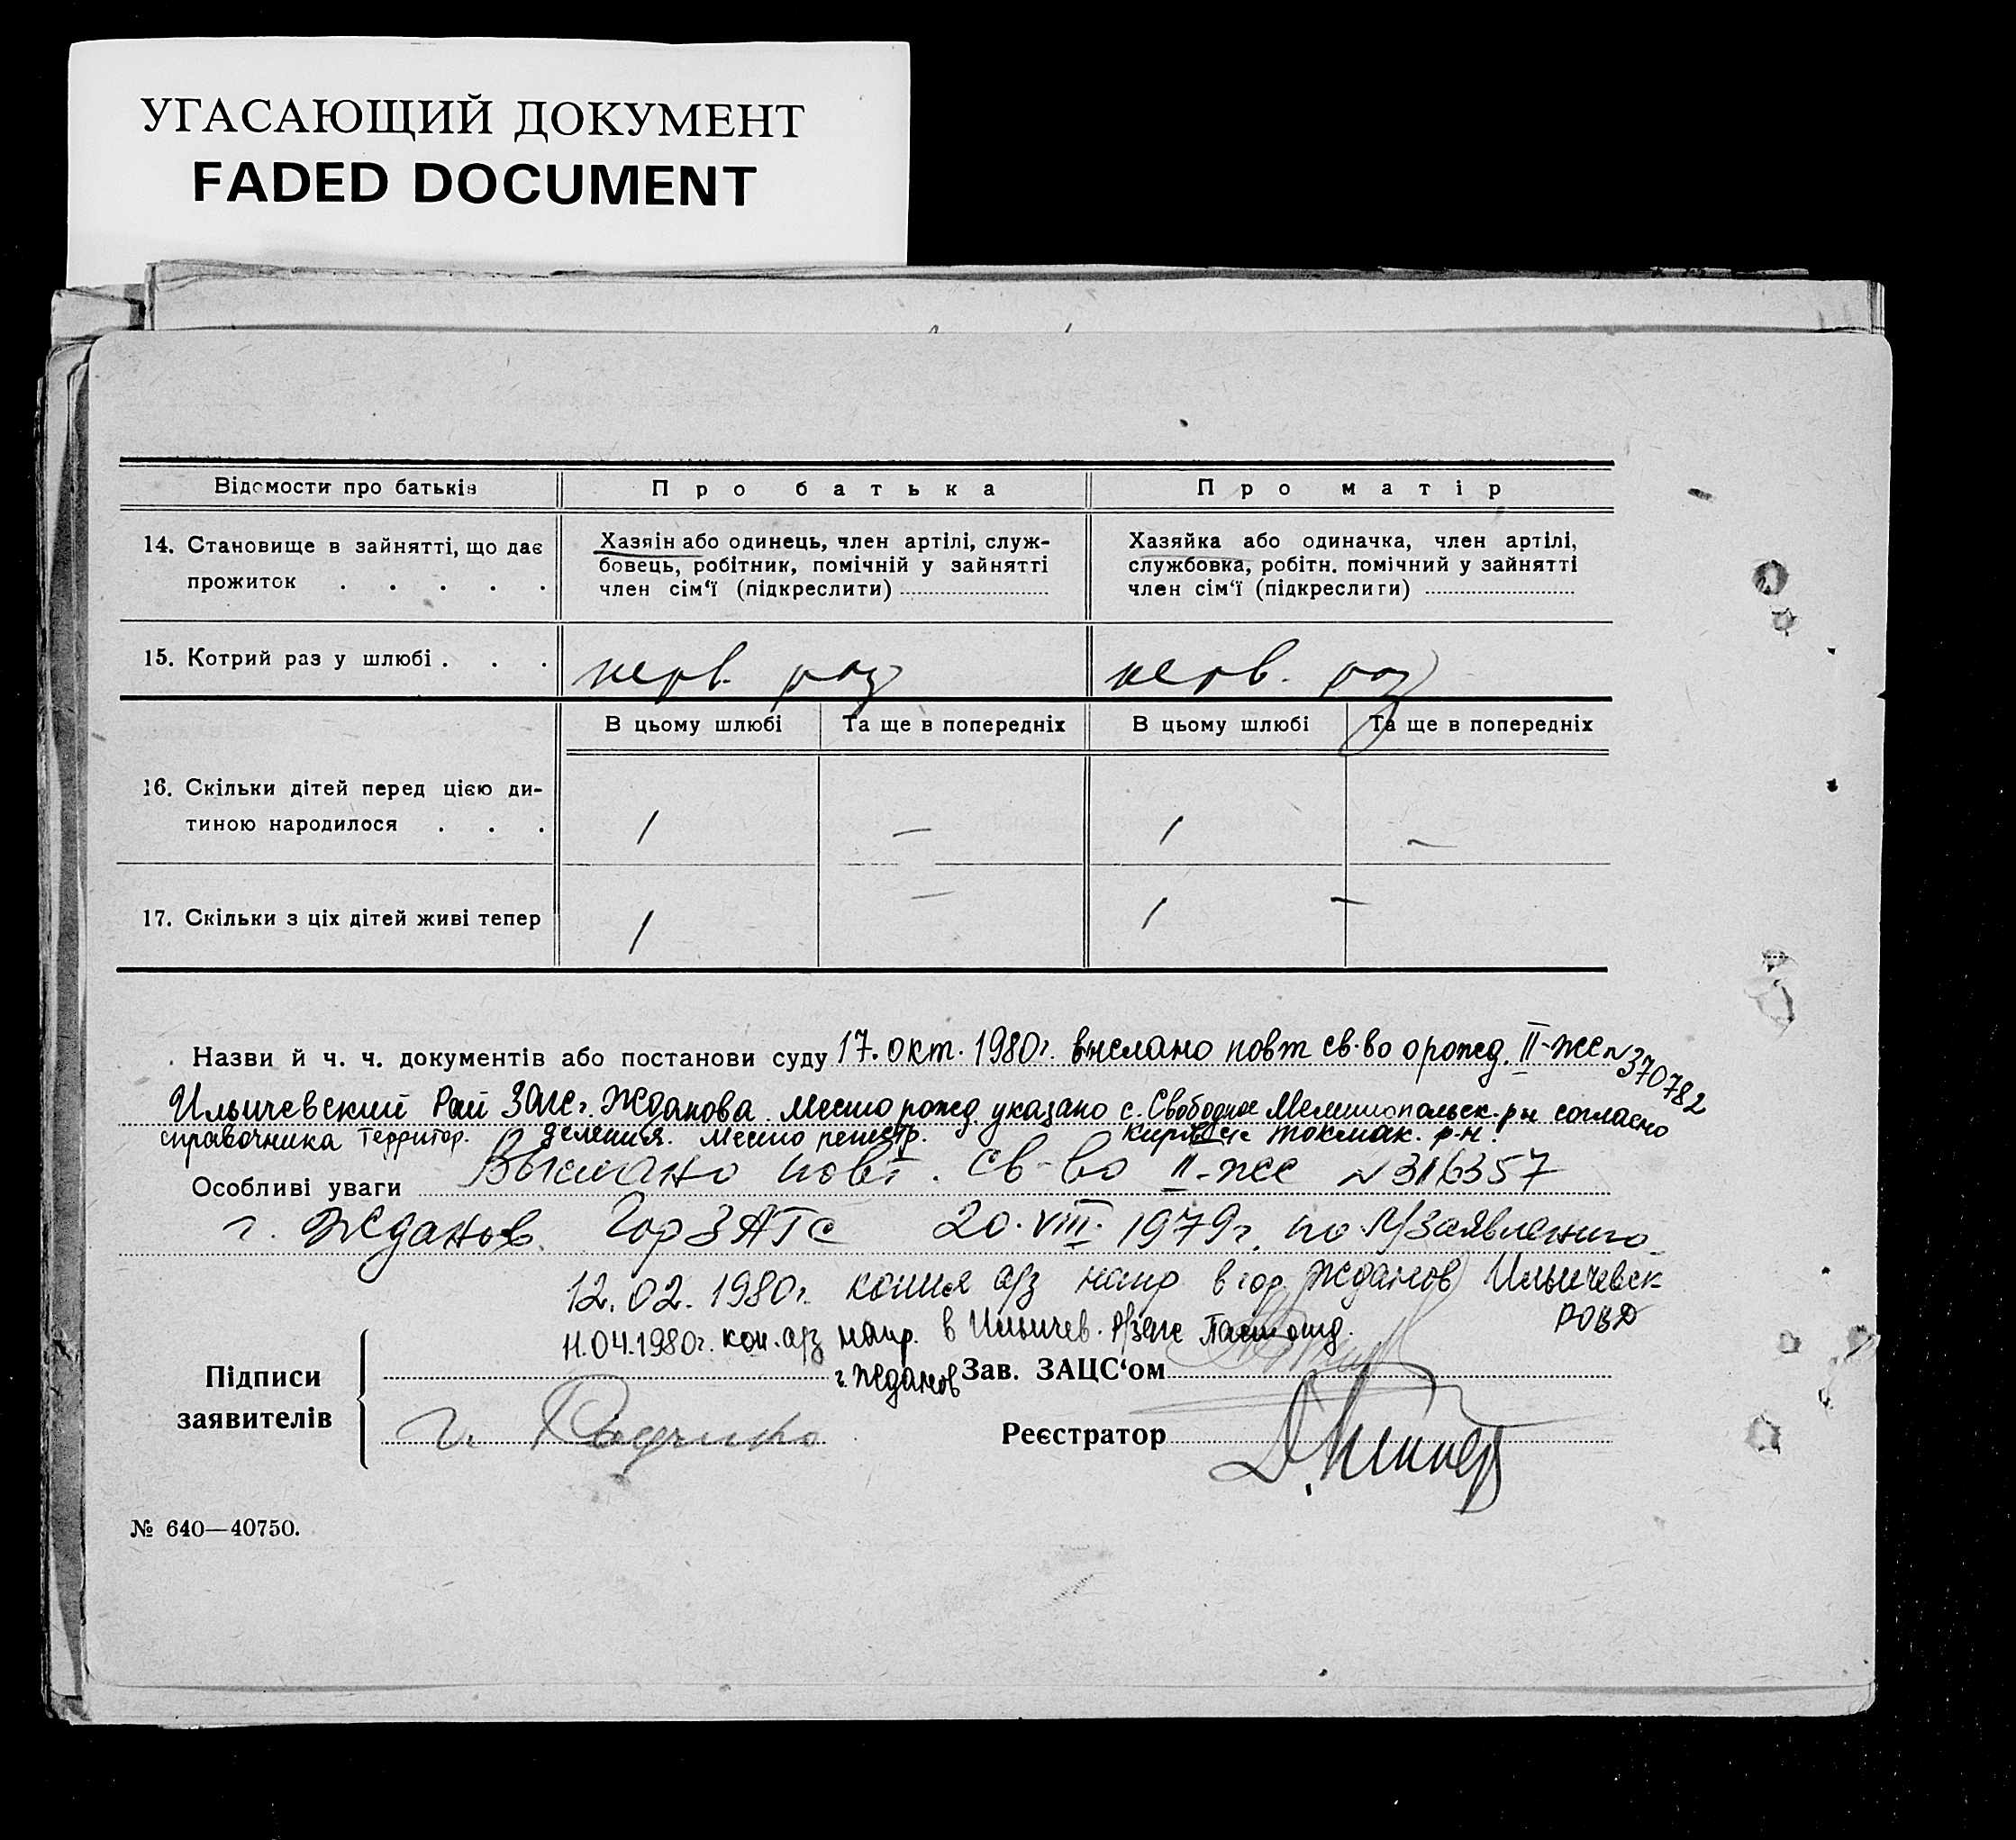 УГАСАЮЩИЙ ДОКУМЕНТ
FADED DOCUMENT
Відомости про батьків
Про батька
Про матір
14. Становище в зайнятті, що дає
прожиток . . . . .
Хазяін або одинець, член артілі, служ-
бовець, робітник, помічній у зайнятті
член сім‘ї (підкреслити)
Хазяйка або одиначка, член артілі,
службовка, робітн. помічний у зайнятті
член сім‘ї (підкреслити)
15. Котрий раз у шлюбі . . .
перв. раз
перв. раз
В цьому шлюбі
Та ще в попередніх
В цьому шлюбі
Та ще в попередніх
16. Скільки дітей перед цією ди-
тиною народилося . . .
1 — 1 —
17. Скільки з ціх дітей живі тепер
1 — 1 —
Назви й ч. ч. документів або постанови суду 17. окт. 1980г. выслано повт св-во о рожд. II-жс N 370782
Ильичевский Рай Загс г. Жданова. Место рожд. указано с. Свободное Мелитопольск. р-н согласно
справочника территор. деления. Место регистр. токмак. р-н.
Особливі уваги Выслано повт. св-во II-жс N 316357
г. Жданов. ГорЗАГС 20. VIII. 1979г. по заявлению
12.02.1980г. копия а/з напр в гор. Жданов Ильичевск
РОВД
11.04.1980г. коп. а/з напр. в Ильичев. р/загс
г. Жданов
Підписи
заявителів
Зав. ЗАЦС‘ом
Реєстратор
№ 640—40750.